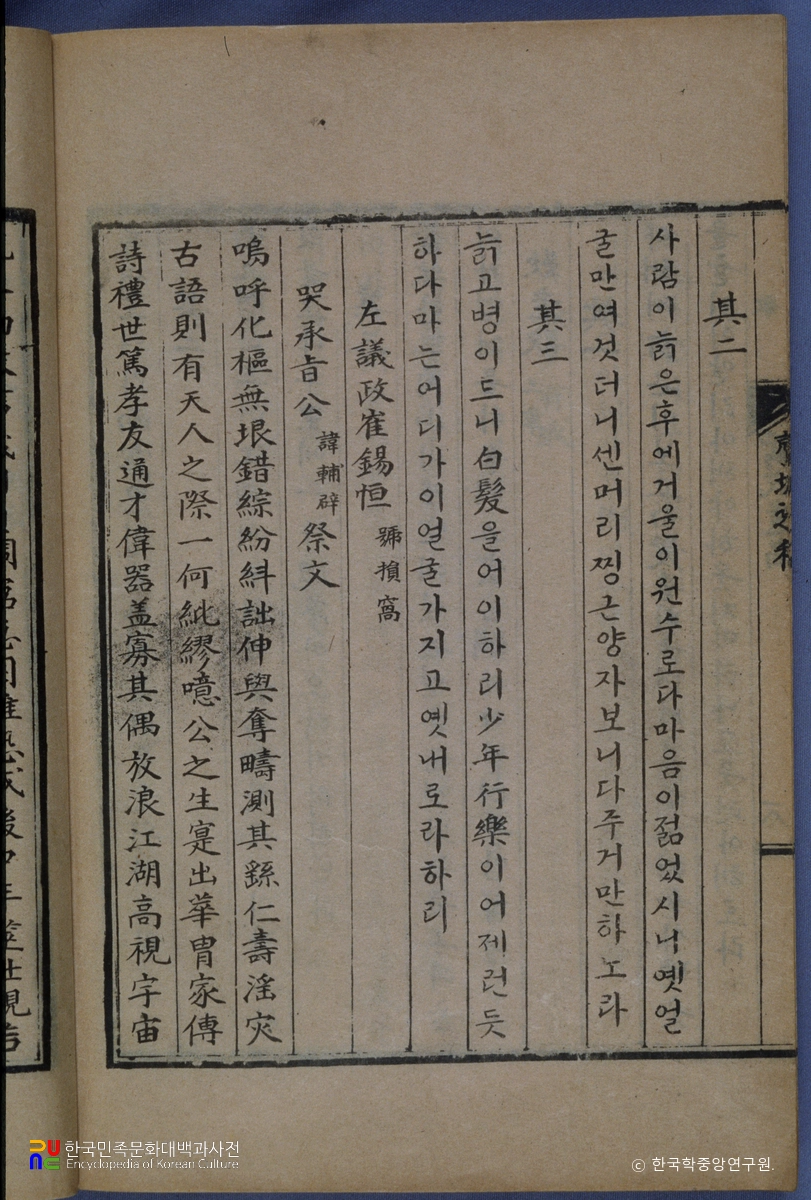 其二
사람이늙은후에거울이원수로다마음이젊었시니옛얼
굴만여겻더니센머리찡근양자보니다주거만하노라
其三
늙고병이드니白髮을어이하리少年行樂이어제런듯
하다마는어디가이얼굴가지고옛내로라하리
左議政崔錫恒 號損窩
哭承旨公 諱輔辟 祭文
嗚呼化樞無垠錯綜紛糾詘伸與奪疇測其繇仁壽淫灾
古語則有天人之際一何紕繆噫公之生寔出華胄家傳
詩禮世篤孝友通才偉器盖寡其偶放浪江湖高視宇宙
한국민족문화대백과사전
Encyclopedia of Korean Culture
© 한국학중앙연구원.